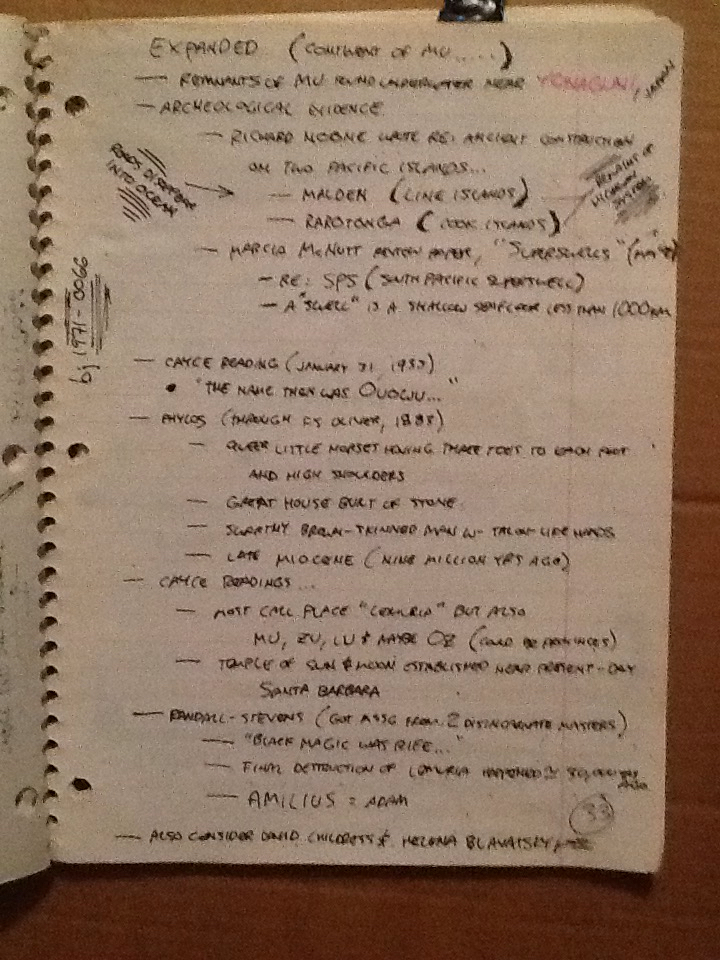 EXPANDED (CONTINENT OF MU.....)
— REMNANTS OF MU FOUND UNDERWATER NEAR YONAGUNI, JAPAN
— ARCHEOLOGICAL EVIDENCE
— RICHARD NOONE WROTE RE: ANCIENT CONSTRUCTION
ON TWO PACIFIC ISLANDS...
— MALDEN (LINE ISLANDS)
— RAROTONGA (COOK ISLANDS)
ROADS DISAPPEAR
INTO OCEAN
REMAINS OF
HIGHWAY
SYSTEM
— MARCIA McNUTT REVIEW PAPER, "SUPERSWELLS"
— RE: SPS (SOUTH PACIFIC SUPERSWELL)
— A "SWELL" IS A SHALLOW SEAFLOOR LESS THAN 1000 KM
bj 1971-0066
— CAYCE READING (JANUARY 31, 1933)
• "THE NAME THEN WAS OUOWU..."
— PHYLOS (THROUGH FS OLIVER, 1883)
— QUEER LITTLE HORSES HAVING THREE TOES TO EACH FOOT
AND HIGH SHOULDERS
— GREAT HOUSE BUILT OF STONE
— SWARTHY BROWN-SKINNED MAN W- TALON-LIKE HANDS
— LATE MIOCENE (NINE MILLION YRS AGO)
— CAYCE READINGS...
— MOST CALL PLACE "LEMURIA" BUT ALSO
MU, ZU, LU & MAYBE OZ (COULD BE PROVINCES)
— TEMPLE OF SUN & MOON ESTABLISHED NEAR PRESENT-DAY
SANTA BARBARA
— RANDALL-STEVENS (GOT MSSG FROM 2 DISINCARNATE MASTERS)
— "BLACK MAGIC WAS RIFE..."
— FINAL DESTRUCTION OF LEMURIA HAPPENED YRS AGO
— AMILIUS = ADAM
33
— ALSO CONSIDER DAVID CHILDRESS & HELENA BLAVATSKY